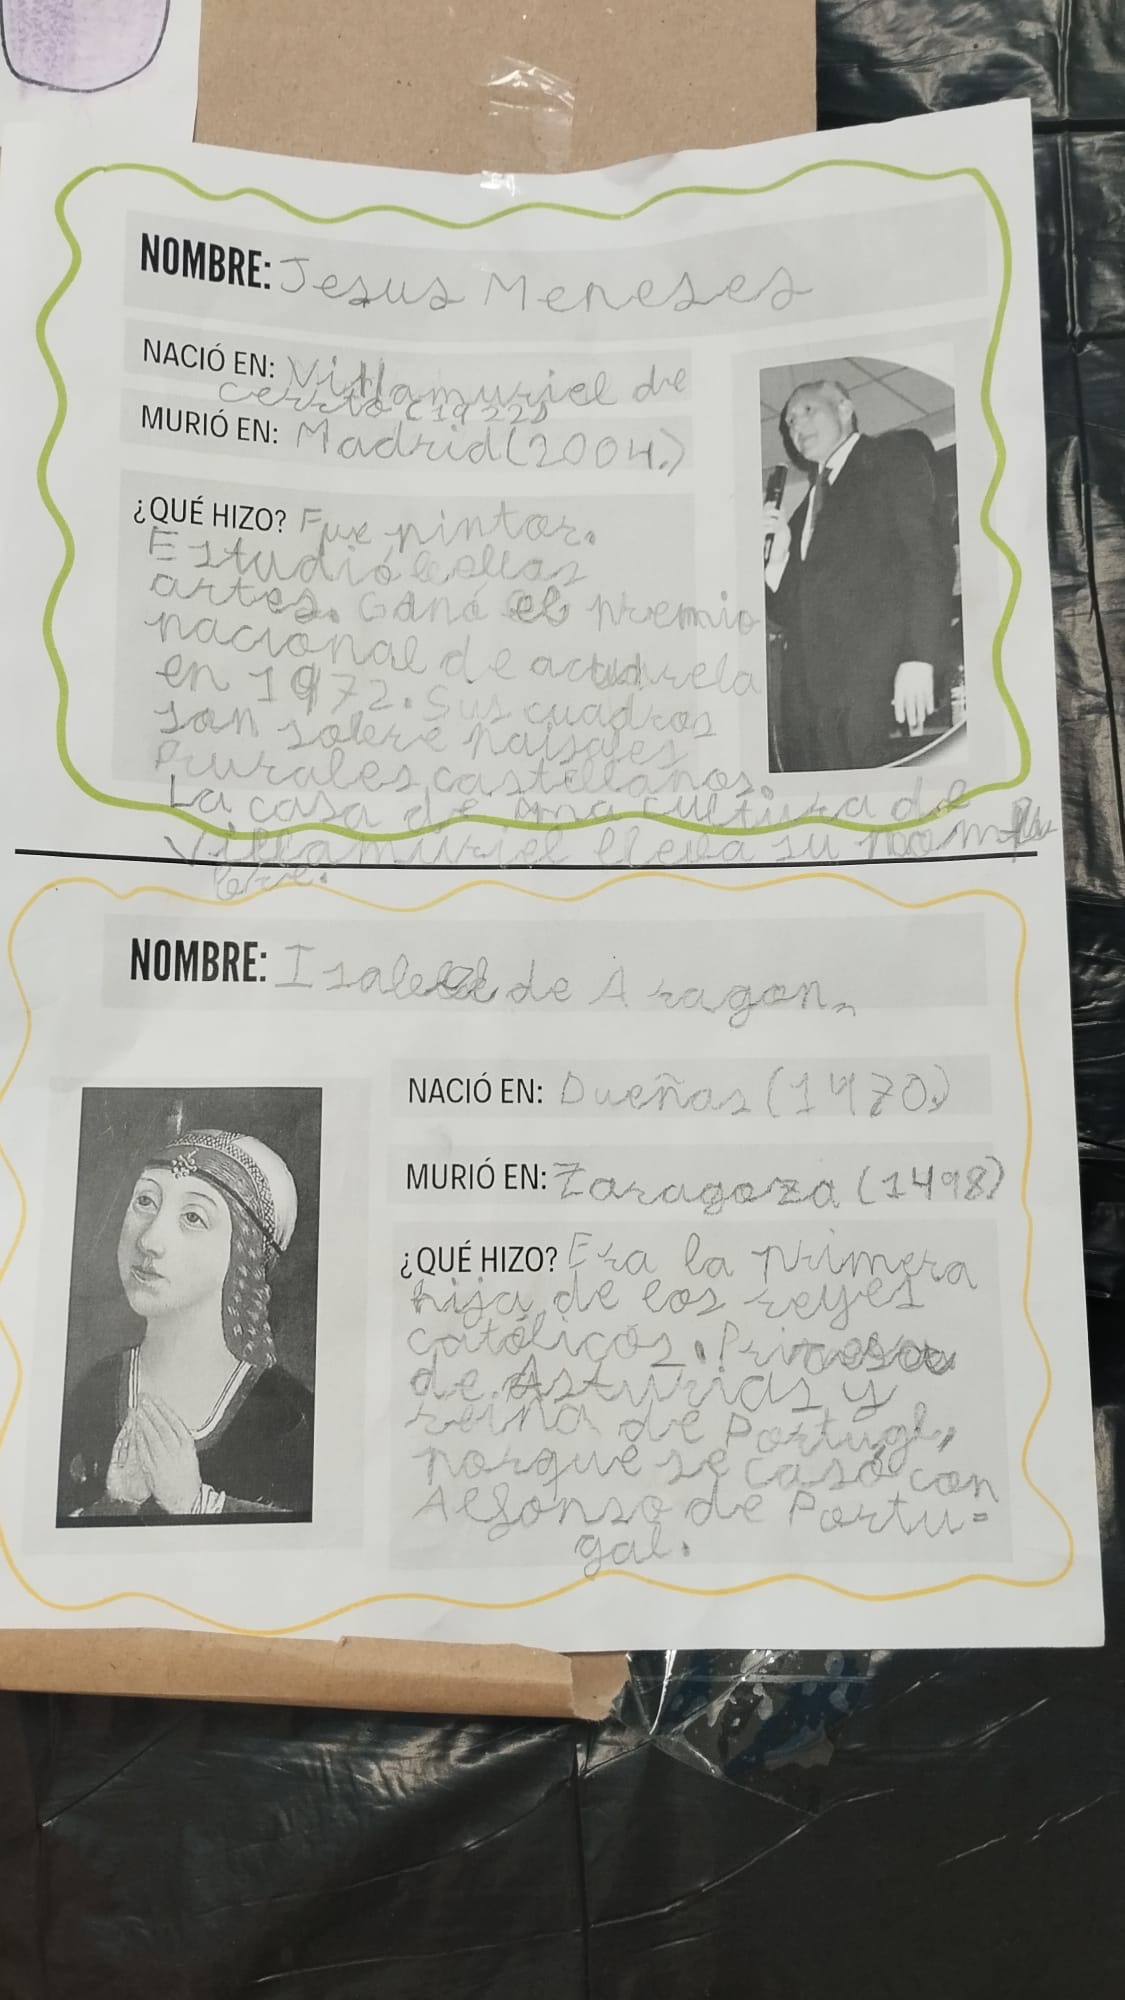 NOMBRE: Jesus Meneses
NACIÓ EN: Villamuriel de
Cerrato (1922)
MURIÓ EN: Madrid (2004.)
¿QUÉ HIZO? Fue pintor.
Estudió bellas
artes. Ganó el premio
nacional de acuarela
en 1972. Sus cuadros
son sobre paisajes
rurales castellanos.
La casa de la cultura de
Villamuriel lleva su nom
bre.
NOMBRE: Isabel de Aragon.
NACIÓ EN: Dueñas (1470)
MURIÓ EN: Zaragoza (1498)
¿QUÉ HIZO? Era la primera
hija de los reyes
católicos. Princesa
de Asturias y
reina de Portugl,
porque se casó con
Alfonso de Portu=
gal.